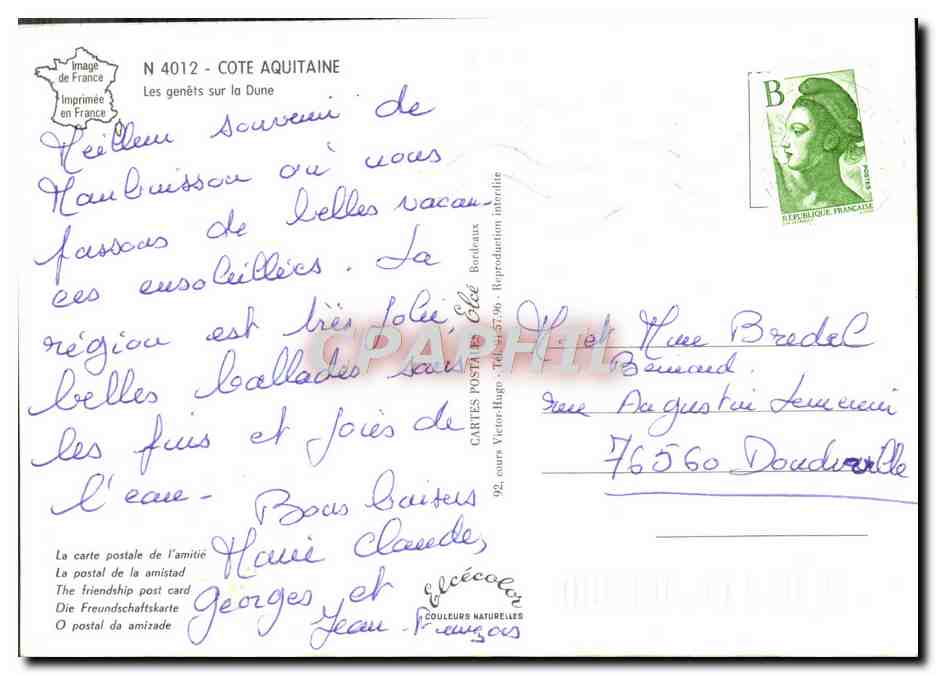 Image
de France
Imprimée
en France
N 4012 - COTE AQUITAINE
Les genêts sur la Dune
Meilleur souvenir de
Maubuisson où nous
passons de belles vacan-
ces ensoleillées. La
région est très jolie,
belles ballades sous
les pins et joies de
l'eau -
Bons baisers
Marie Claude,
Georges et
Jean-François
La carte postale de l'amitié
La postal de la amistad
The friendship post card
Die Freundschaftskarte
O postal da amizade
Elcécolor
COULEURS NATURELLES
CARTES POSTALES Elcé Bordeaux
92, cours Victor-Hugo - Tél. 91.57.96 - Reproduction interdite
CPAPHIL
B
POSTES
REPUBLIQUE FRANÇAISE
M. et Mme Bredel
Bernard.
rue Augustin Lemercier
76560 Doudeville